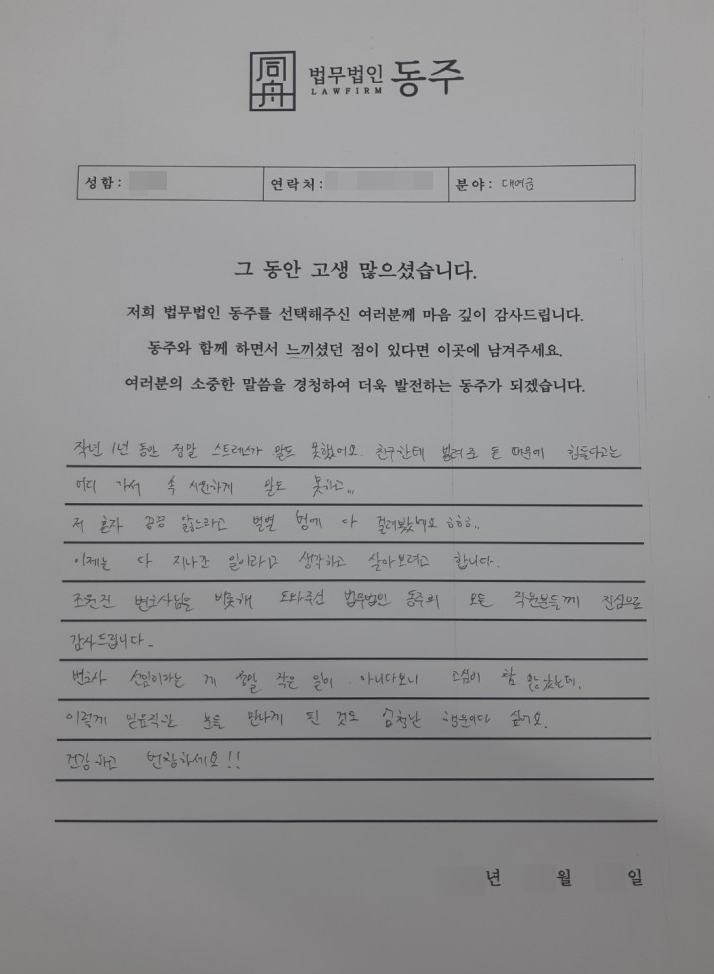 同舟
법무법인 동주
LAWFIRM
성함: 연락처: 분야: 대여금
그 동안 고생 많으셨습니다.
저희 법무법인 동주를 선택해주신 여러분께 마음 깊이 감사드립니다.
동주와 함께 하면서 느끼셨던 점이 있다면 이곳에 남겨주세요.
여러분의 소중한 말씀을 경청하여 더욱 발전하는 동주가 되겠습니다.
작년 1년 동안 정말 스트레스가 말도 못했어요. 친구한테 빌려준 돈 때문에 힘들다고는
어디 가서 속 시원하게 말도 못하고,,,
저 혼자 끙끙 앓느라고 별별 병에 다 걸려봤네요 ㅎㅎㅎ,,
이제는 다 지나간 일이라고 생각하고 살아보려고 합니다.
조원진 변호사님을 비롯해 도와주신 법무법인 동주의 모든 직원분들께 진심으로
감사드립니다.
변호사 선임이라는 게 정말 작은 일이 아니다보니 고심이 참 많았는데,
이렇게 믿음직한 분을 만나게 된 것도 엄청난 행운이다 싶어요.
건강하고 번창하세요!!
년 월 일